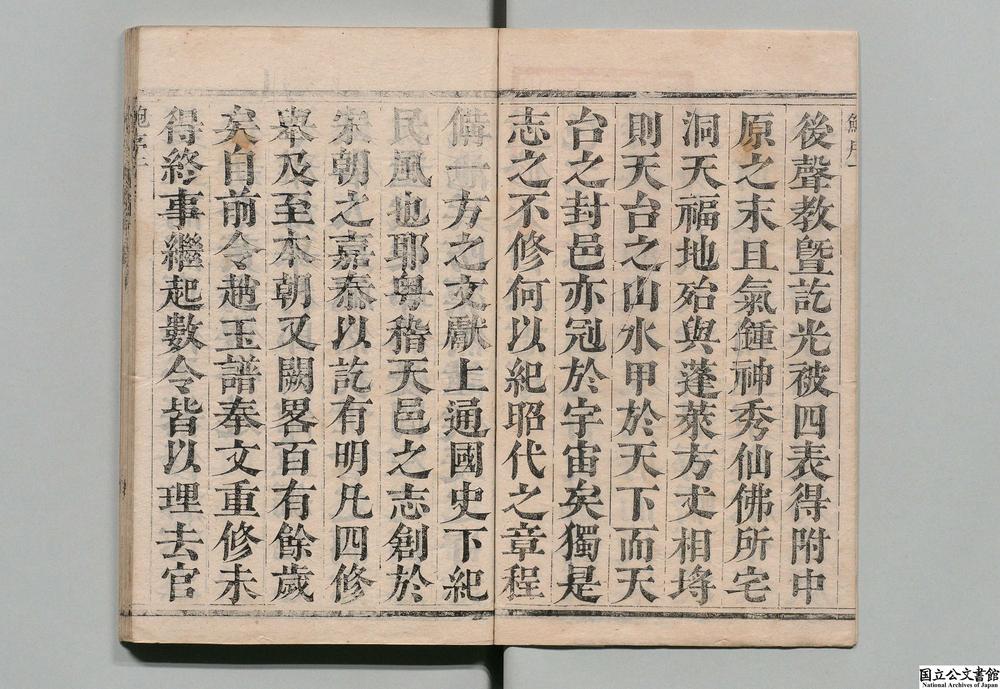 後聲教曁訖光被四表得附中
原之末且氣鍾神秀仙佛所宅
洞天福地殆與蓬萊方丈相埒
則天台之山水甲於天下而天
台之封邑亦冠於宇宙矣獨是
志之不修何以紀昭代之章程
備一方之文獻上通國史下紀
民風也耶粤稽天邑之志創於
宋朝之嘉泰以訖有明凡四修
舉及至本朝又闕畧百有餘歲
矣自前令趙玉譜奉文重修未
得終事繼起數令皆以理去官
国立公文書館
National Archives of Japan